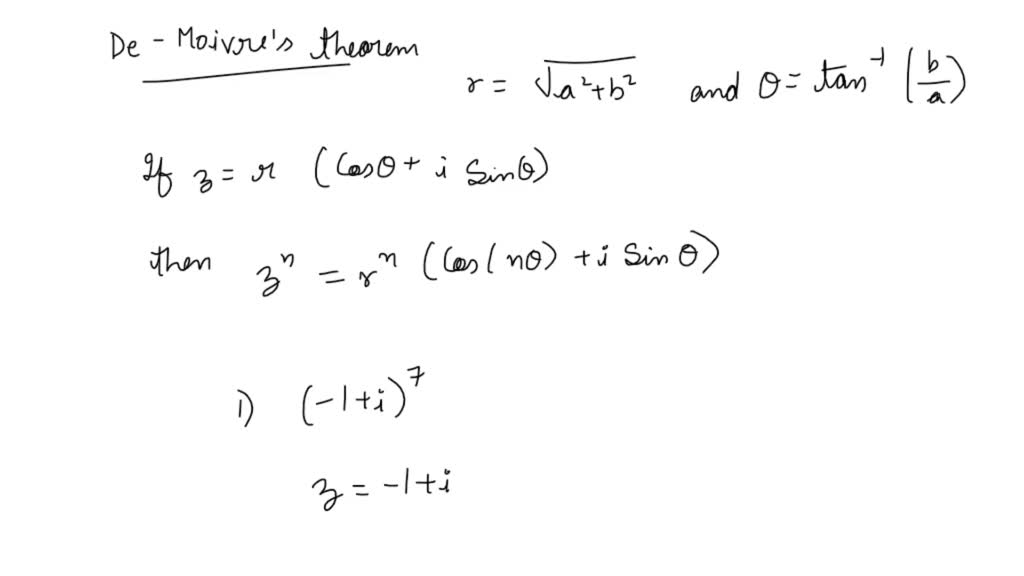 De - Moivre's theorem
r = √a²+b² and θ = tan⁻¹ (b/a)
If z = r (Cosθ + i Sinθ)
then zⁿ = rⁿ (Cos(nθ) + i Sin θ)
1) (-1+i)⁷
z = -1+i